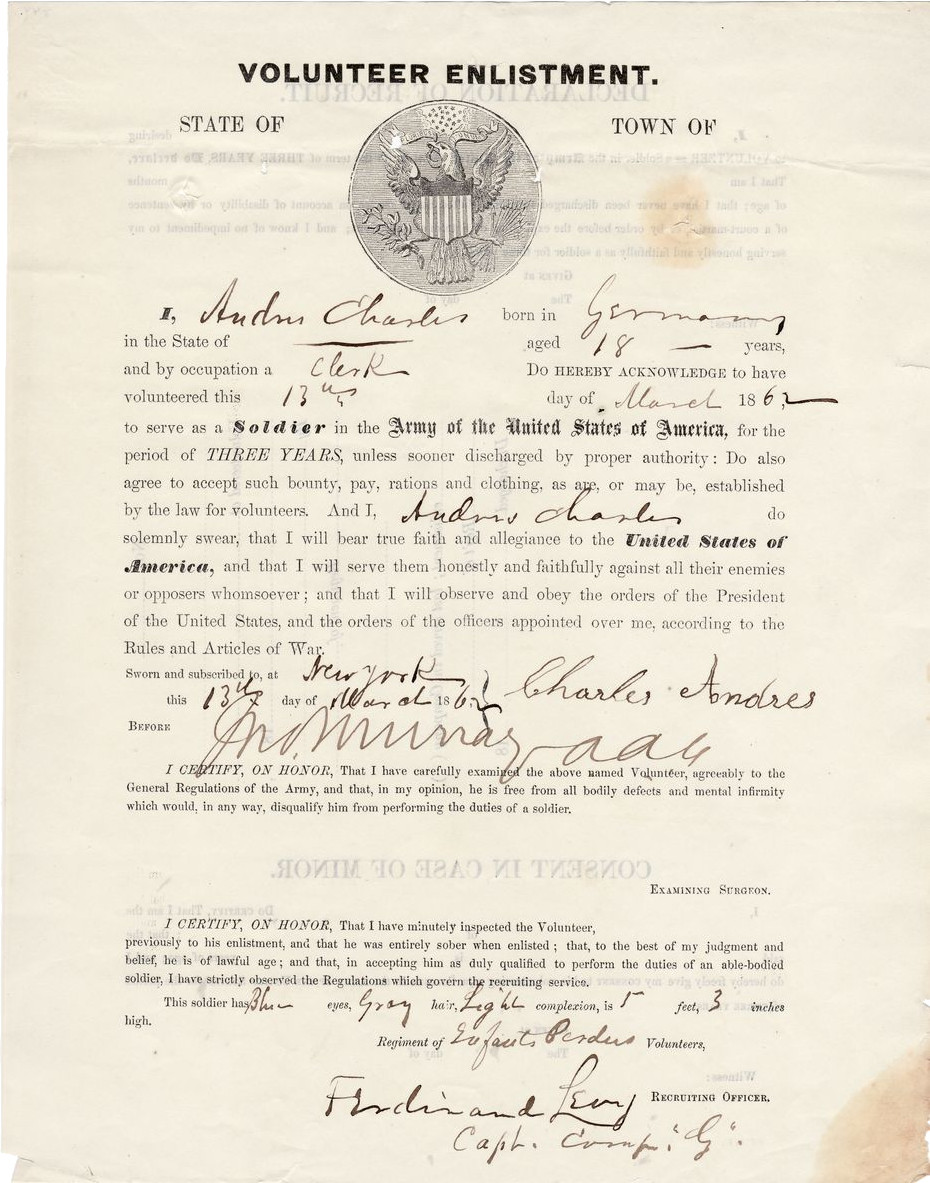 VOLUNTEER ENLISTMENT.
STATE OF TOWN OF
I, Andres Charles born in Germany
in the State of — aged 18 — years,
and by occupation a Clerk DO HEREBY ACKNOWLEDGE to have
volunteered this 13th day of March 1862
to serve as a Soldier in the Army of the United States of America, for the
period of THREE YEARS, unless sooner discharged by proper authority: Do also
agree to accept such bounty, pay, rations and clothing, as are, or may be, established
by the law for volunteers. And I, Andres Charles do
solemnly swear, that I will bear true faith and allegiance to the United States of
America, and that I will serve them honestly and faithfully against all their enemies
or opposers whomsoever; and that I will observe and obey the orders of the President
of the United States, and the orders of the officers appointed over me, according to the
Rules and Articles of War.
Sworn and subscribed to, at New York
this 13th day of March 1862 Charles Andres
BEFORE Jno. Murray
I CERTIFY, ON HONOR, That I have carefully examined the above named Volunteer, agreeably to the
General Regulations of the Army, and that, in my opinion, he is free from all bodily defects and mental infirmity
which would, in any way, disqualify him from performing the duties of a soldier.
EXAMINING SURGEON.
I CERTIFY, ON HONOR, That I have minutely inspected the Volunteer,
previously to his enlistment, and that he was entirely sober when enlisted; that, to the best of my judgment and
belief, he is of lawful age; and that, in accepting him as duly qualified to perform the duties of an able-bodied
soldier, I have strictly observed the Regulations which govern the recruiting service.
This soldier has Blue eyes, Gray hair, Light complexion, is 5 feet, 3 inches
high.
Regiment of Enfants Perdus Volunteers,
Ferdinand Levy RECRUITING OFFICER.
Capt. Comp. "G".